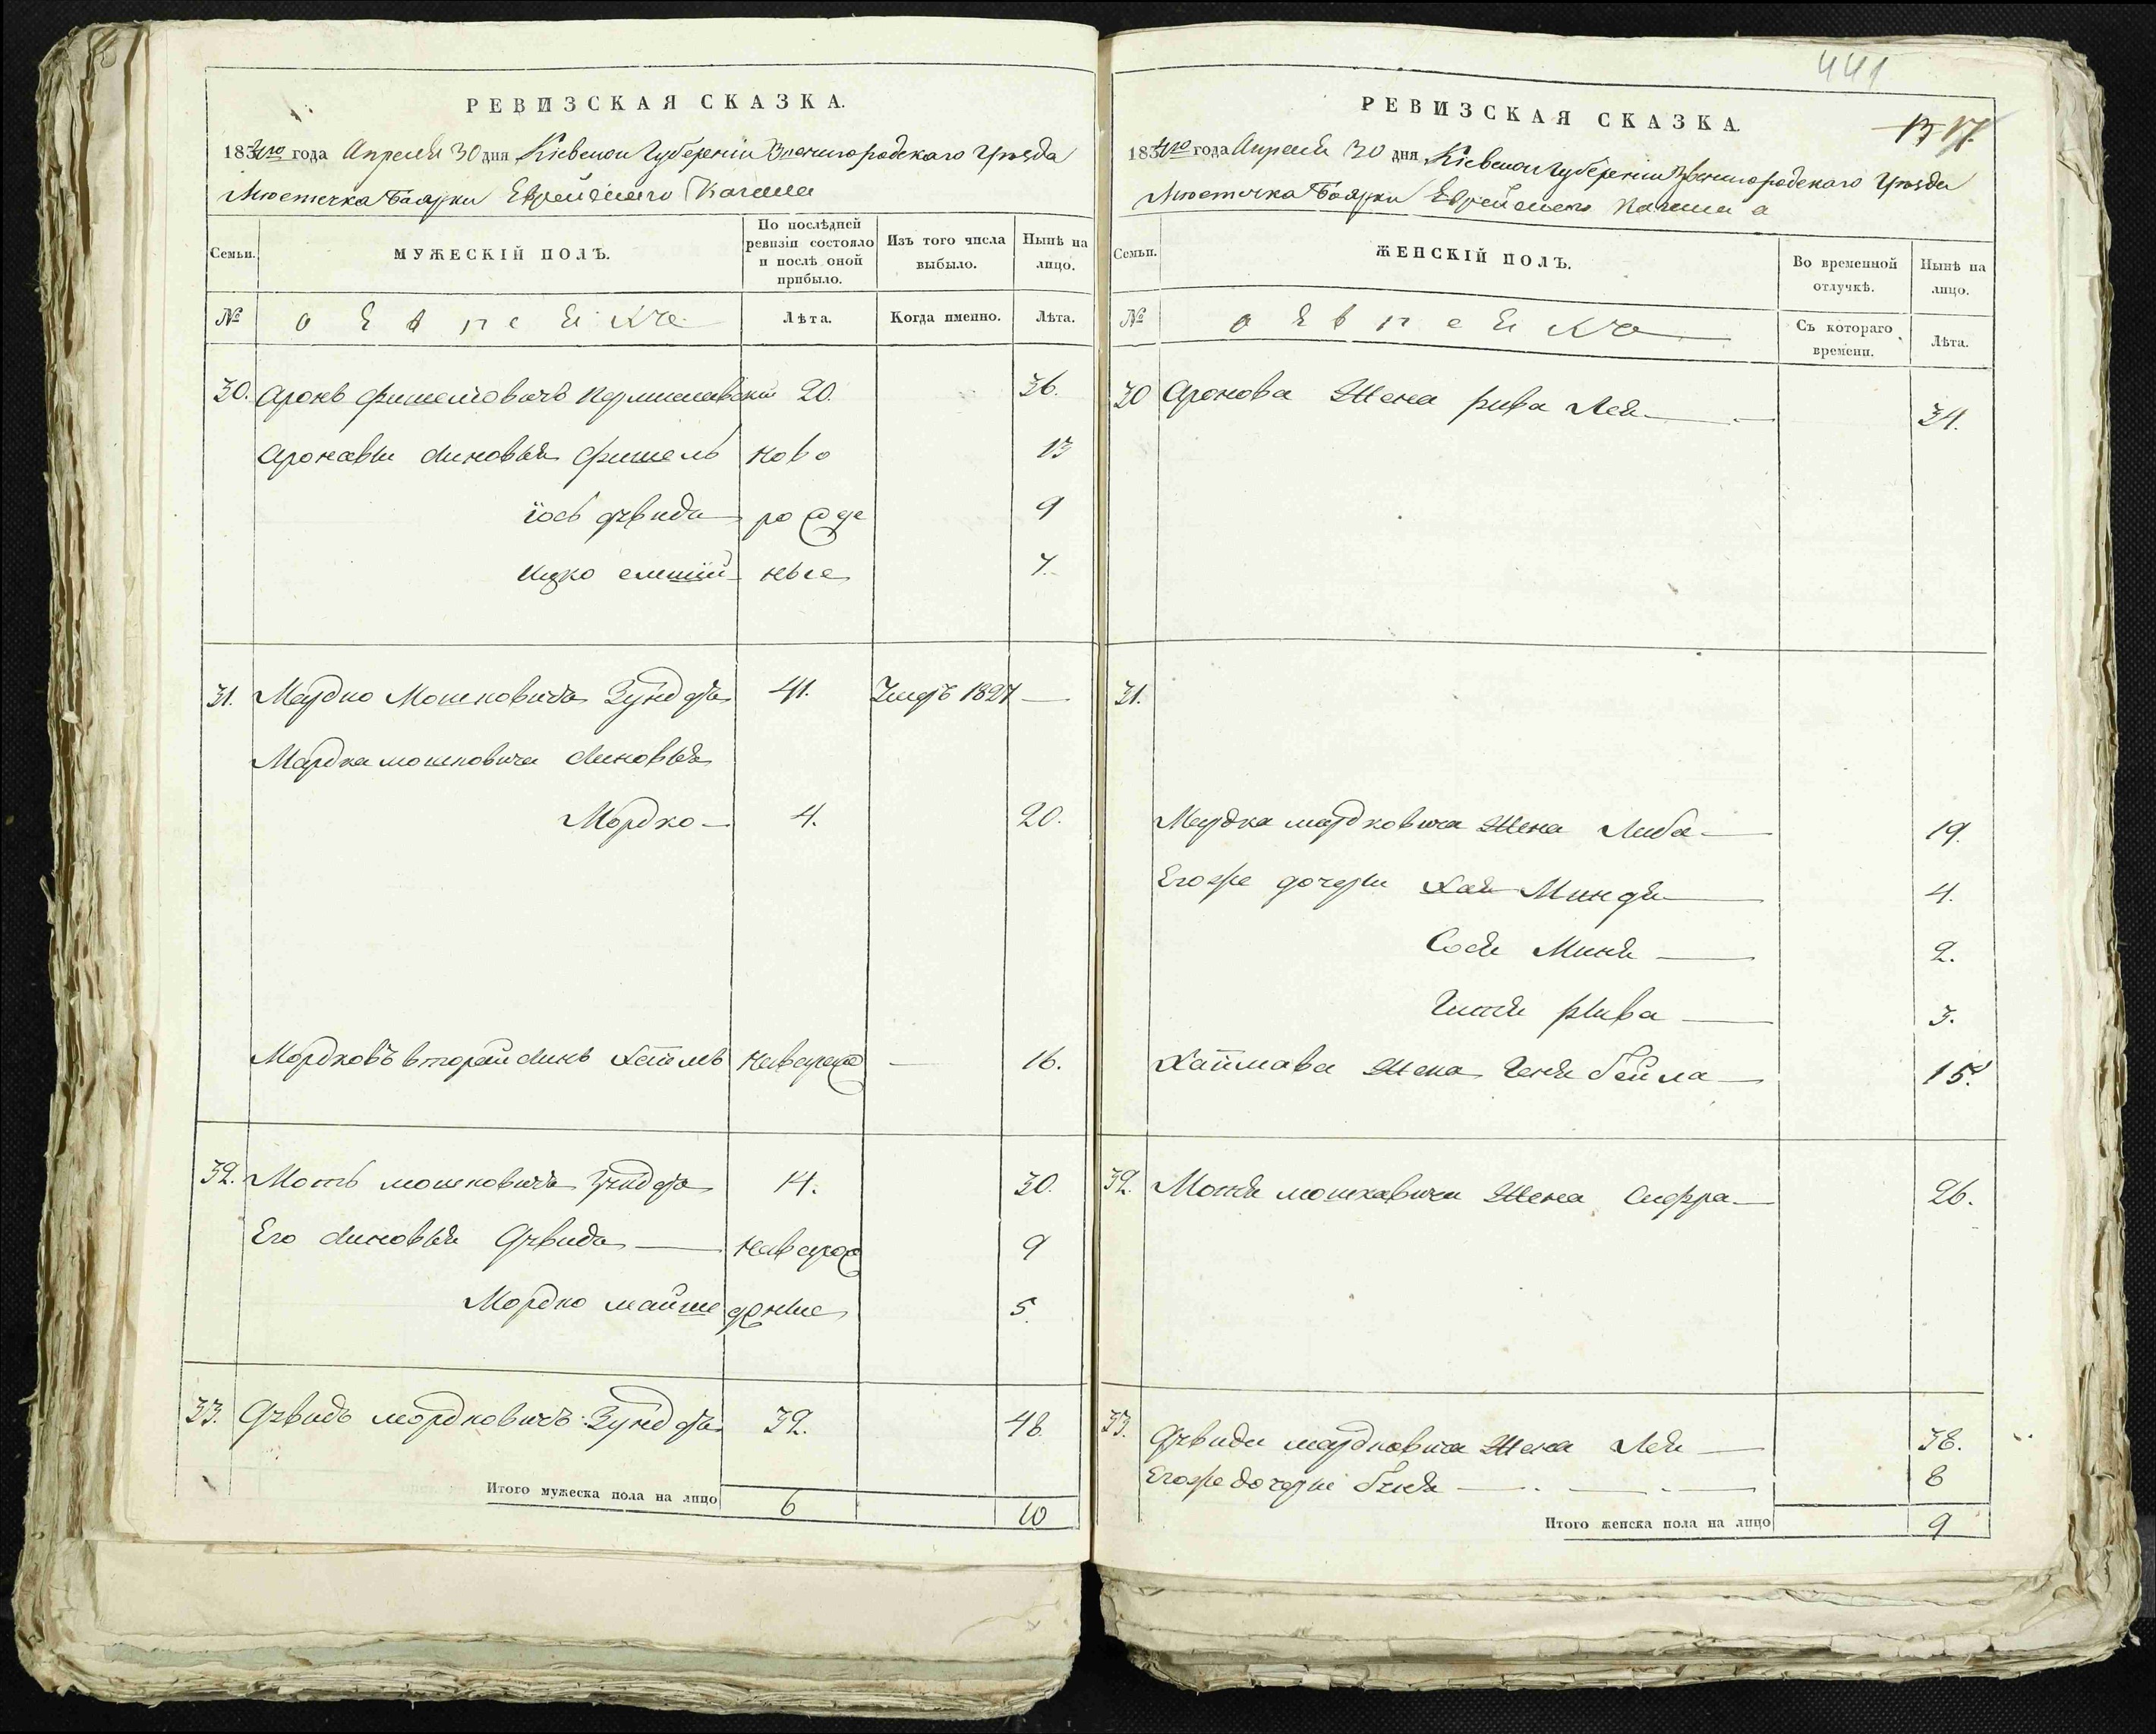 РЕВИЗСКАЯ СКАЗКА.
1834го года Апреля 30 дня Кіевской Губерніи Звенигородскаго Уѣзда
Мѣстечка Боярки Еврейского Кагала
Семьи.
МУЖЕСКІЙ ПОЛЪ.
По послѣдней ревизіи состояло и послѣ оной прибыло.
Изъ того числа выбыло.
Нынѣ на лицо.
№
о Евреяхъ
Лѣта.
Когда именно.
Лѣта.
30. Аронъ Фишелювичъ 20. 36.
Ароновы синовья Фишель ново 13
Іось Дувидъ рожде 9
Ицко ные 7.
31. Мардко Мошковичъ Зундъ 41. Умеръ 1827 —
Мардка мошковича синовья
Мордко — 4. 20.
Мордковъ вторый синъ Хаимъ — 16.
32. Моть мошковичъ 14. 30.
Его синовья Дувидъ — новорож 9
Мордко денные 5.
33. Дувидъ мордковичъ 32. 48.
Итого мужеска пола на лицо 6 10
441
17.
РЕВИЗСКАЯ СКАЗКА.
1834го года Апреля 30 дня Кіевской Губерніи Звенигородскаго Уѣзда
Мѣстечка Боярки Еврейского Кагала
Семьи.
ЖЕНСКІЙ ПОЛЪ.
Во временной отлучкѣ.
Нынѣ на лицо.
№
о Евреяхъ
Съ котораго времени.
Лѣта.
30 Аронова Жена рива Лея — 34.
31.
Мардка мардковича Жена Либа — 19.
Егоже дочери Хая Миндя — 4.
Сося Миня — 2.
Гитя Рыва — 3.
Хаимова Жена Геня бейла — 15.
32. Мотя мошковича Жена Сифра — 26.
33. Дувида мардковича Жена Лея — 38.
Егоже дочери — 8
Итого женска пола на лицо 9